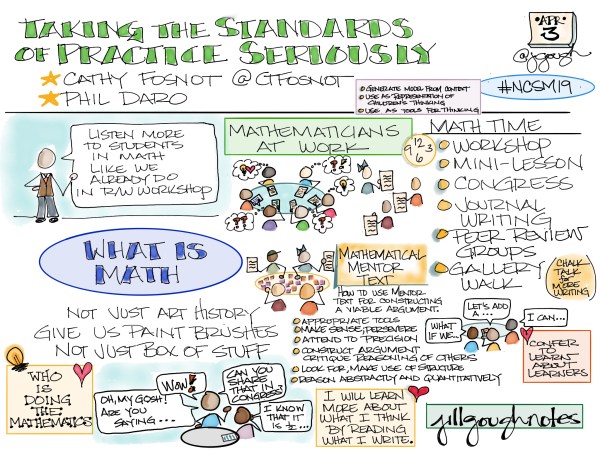 TAKING THE STANDARDS
OF PRACTICE SERIOUSLY
CATHY FOSNOT @CTFOSNOT
PHIL DARO
APR
3
@jgough
#NCSM19
GENERATE MODEL FROM CONTEXT
USE AS REPRESENTATION OF
CHILDREN'S THINKING
USE AS TOOLS FOR THINKING
LISTEN MORE
TO STUDENTS
IN MATH
LIKE WE
ALREADY DO
IN R/W WORKSHOP
MATHEMATICIANS
AT WORK
12
9 3
6
MATH TIME
WORKSHOP
MINI-LESSON
CONGRESS
JOURNAL
WRITING
PEER REVIEW
GROUPS
GALLERY
WALK
CHALK
TALK
for
MORE
WRITING
WHAT IS
MATH
MATHEMATICAL
MENTOR
TEXT
HOW TO USE MENTOR
TEXT FOR CONSTRUCTING
A VIABLE ARGUMENT.
APPROPRIATE TOOLS
MAKE SENSE; PERSEVERE
ATTEND TO PRECISION
CONSTRUCT ARGUMENT
CRITIQUE REASONING OF OTHERS
LOOK FOR, MAKE USE OF STRUCTURE
REASON ABSTRACTLY AND QUANTITATIVELY
NOT JUST ART HISTORY
GIVE US PAINT BRUSHES
NOT JUST BOX OF STUFF
WHAT
IF WE...
LET'S ADD
A ...
I CAN...
CONFER
TO
LEARN
ABOUT
LEARNERS
WHO
IS
DOING
THE
MATHEMATICS
OH, MY GOSH!
ARE YOU
SAYING...
WOW!
CAN YOU
SHARE
THAT IN
CONGRESS?
I KNOW
THAT IT
IS ½...
I WILL LEARN
MORE ABOUT
WHAT I THINK
BY READING
WHAT I WRITE.
jillgoughnotes